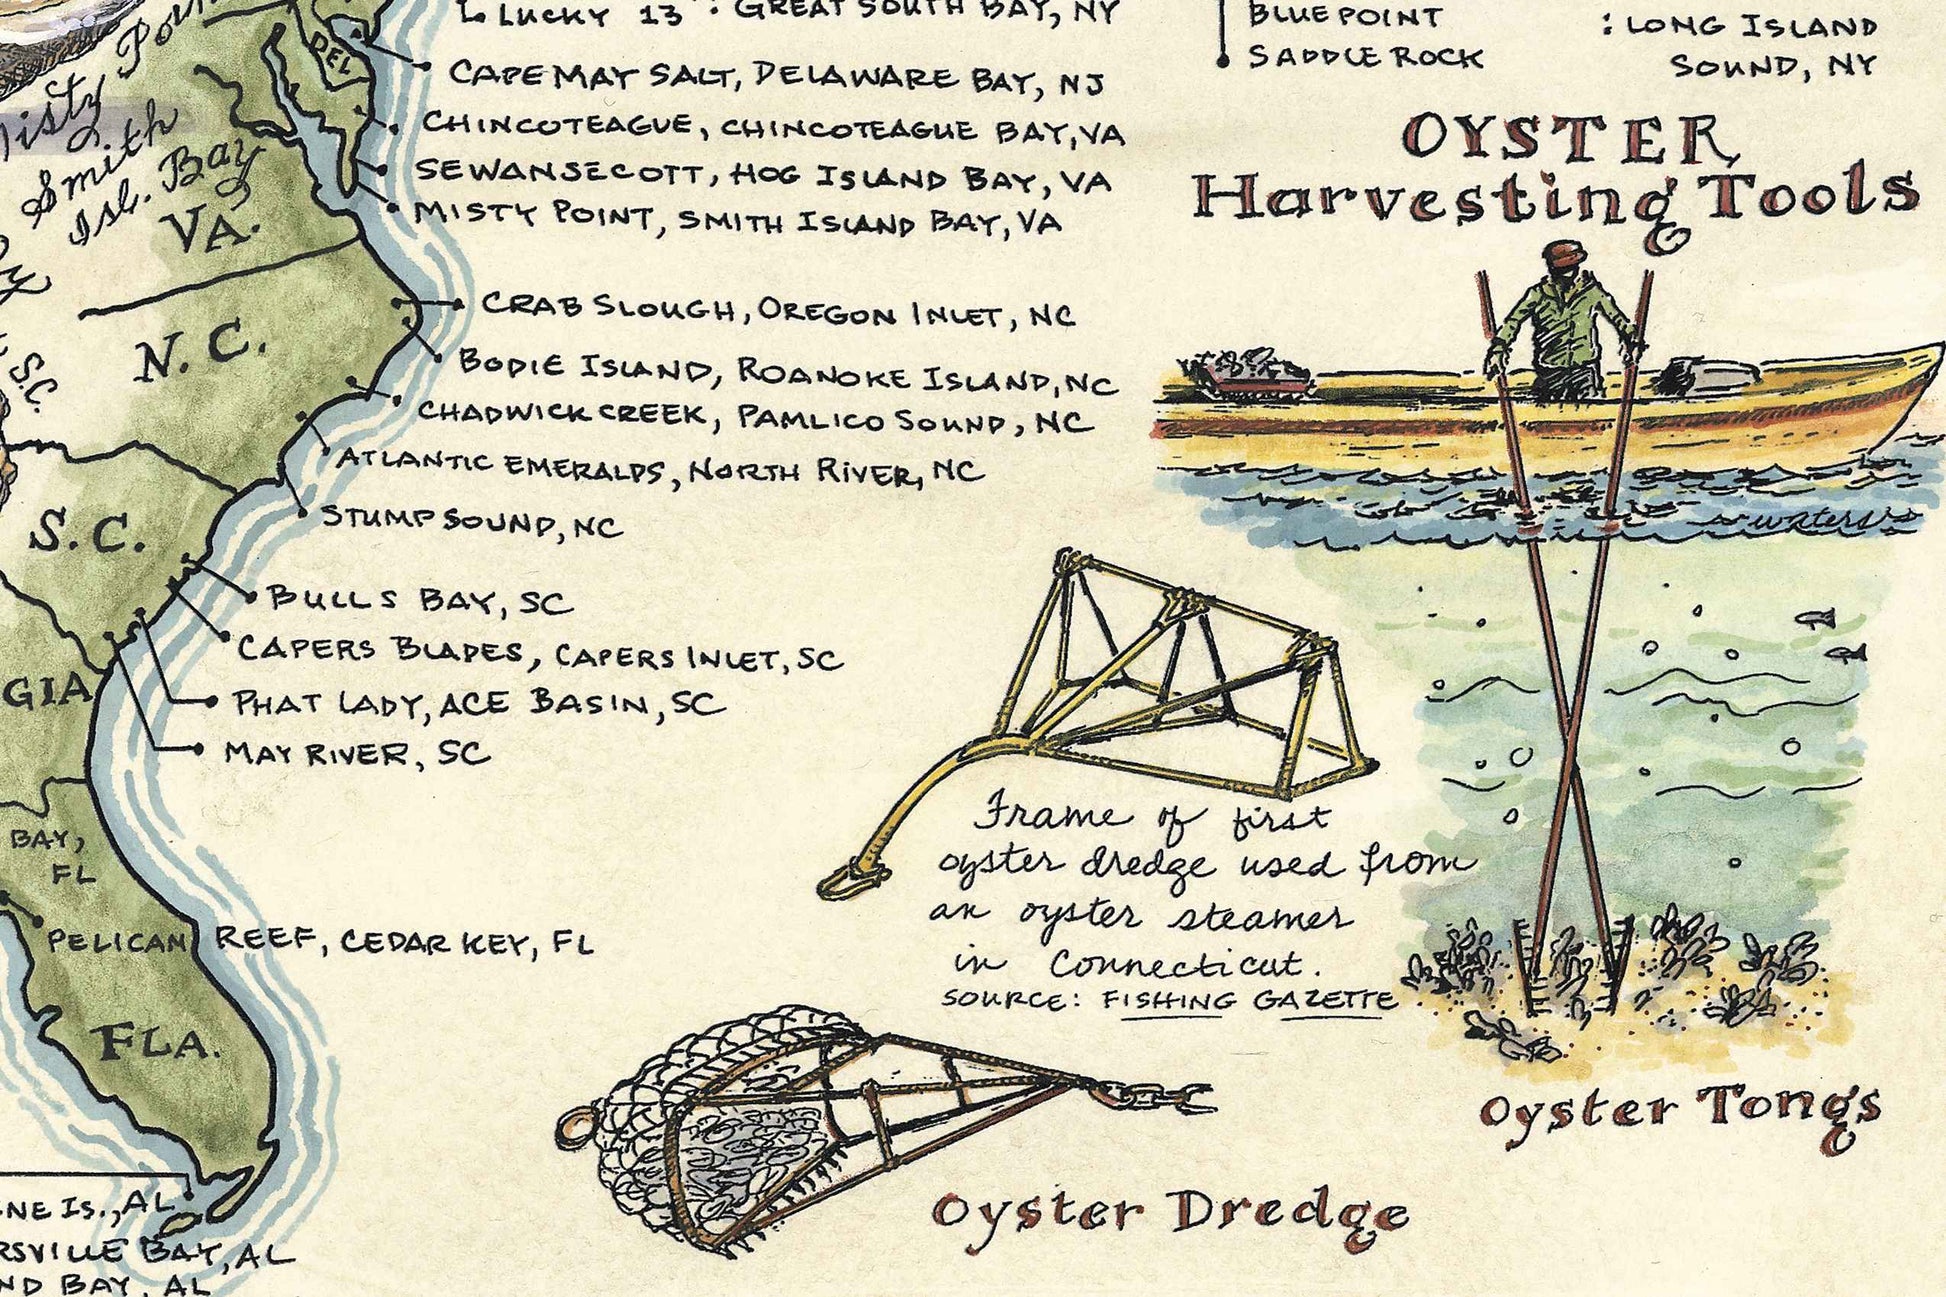 Lucky 13 : Great South Bay, NY
Cape May Salt, Delaware Bay, NJ
Chincoteague, Chincoteague Bay, VA
Sewansecott, Hog Island Bay, VA
Misty Point, Smith Island Bay, VA
Crab Slough, Oregon Inlet, NC
Bodie Island, Roanoke Island, NC
Chadwick Creek, Pamlico Sound, NC
Atlantic Emeralds, North River, NC
Stump Sound, NC
Bulls Bay, SC
Capers Blades, Capers Inlet, SC
Phat Lady, ACE Basin, SC
May River, SC
Pelican Reef, Cedar Key, FL
DEL
Misty Point
Smith
Isl. Bay
VA.
N.C.
S.C.
S.C.
GIA
Bay,
FL
FLA.
ne Is., AL
rsville Bay, AL
nd Bay, AL
Bluepoint
Saddle Rock
: Long Island
Sound, NY
OYSTER
Harvesting Tools
waters
Frame of first
oyster dredge used from
an oyster steamer
in Connecticut.
Source: Fishing Gazette
Oyster Tongs
Oyster Dredge